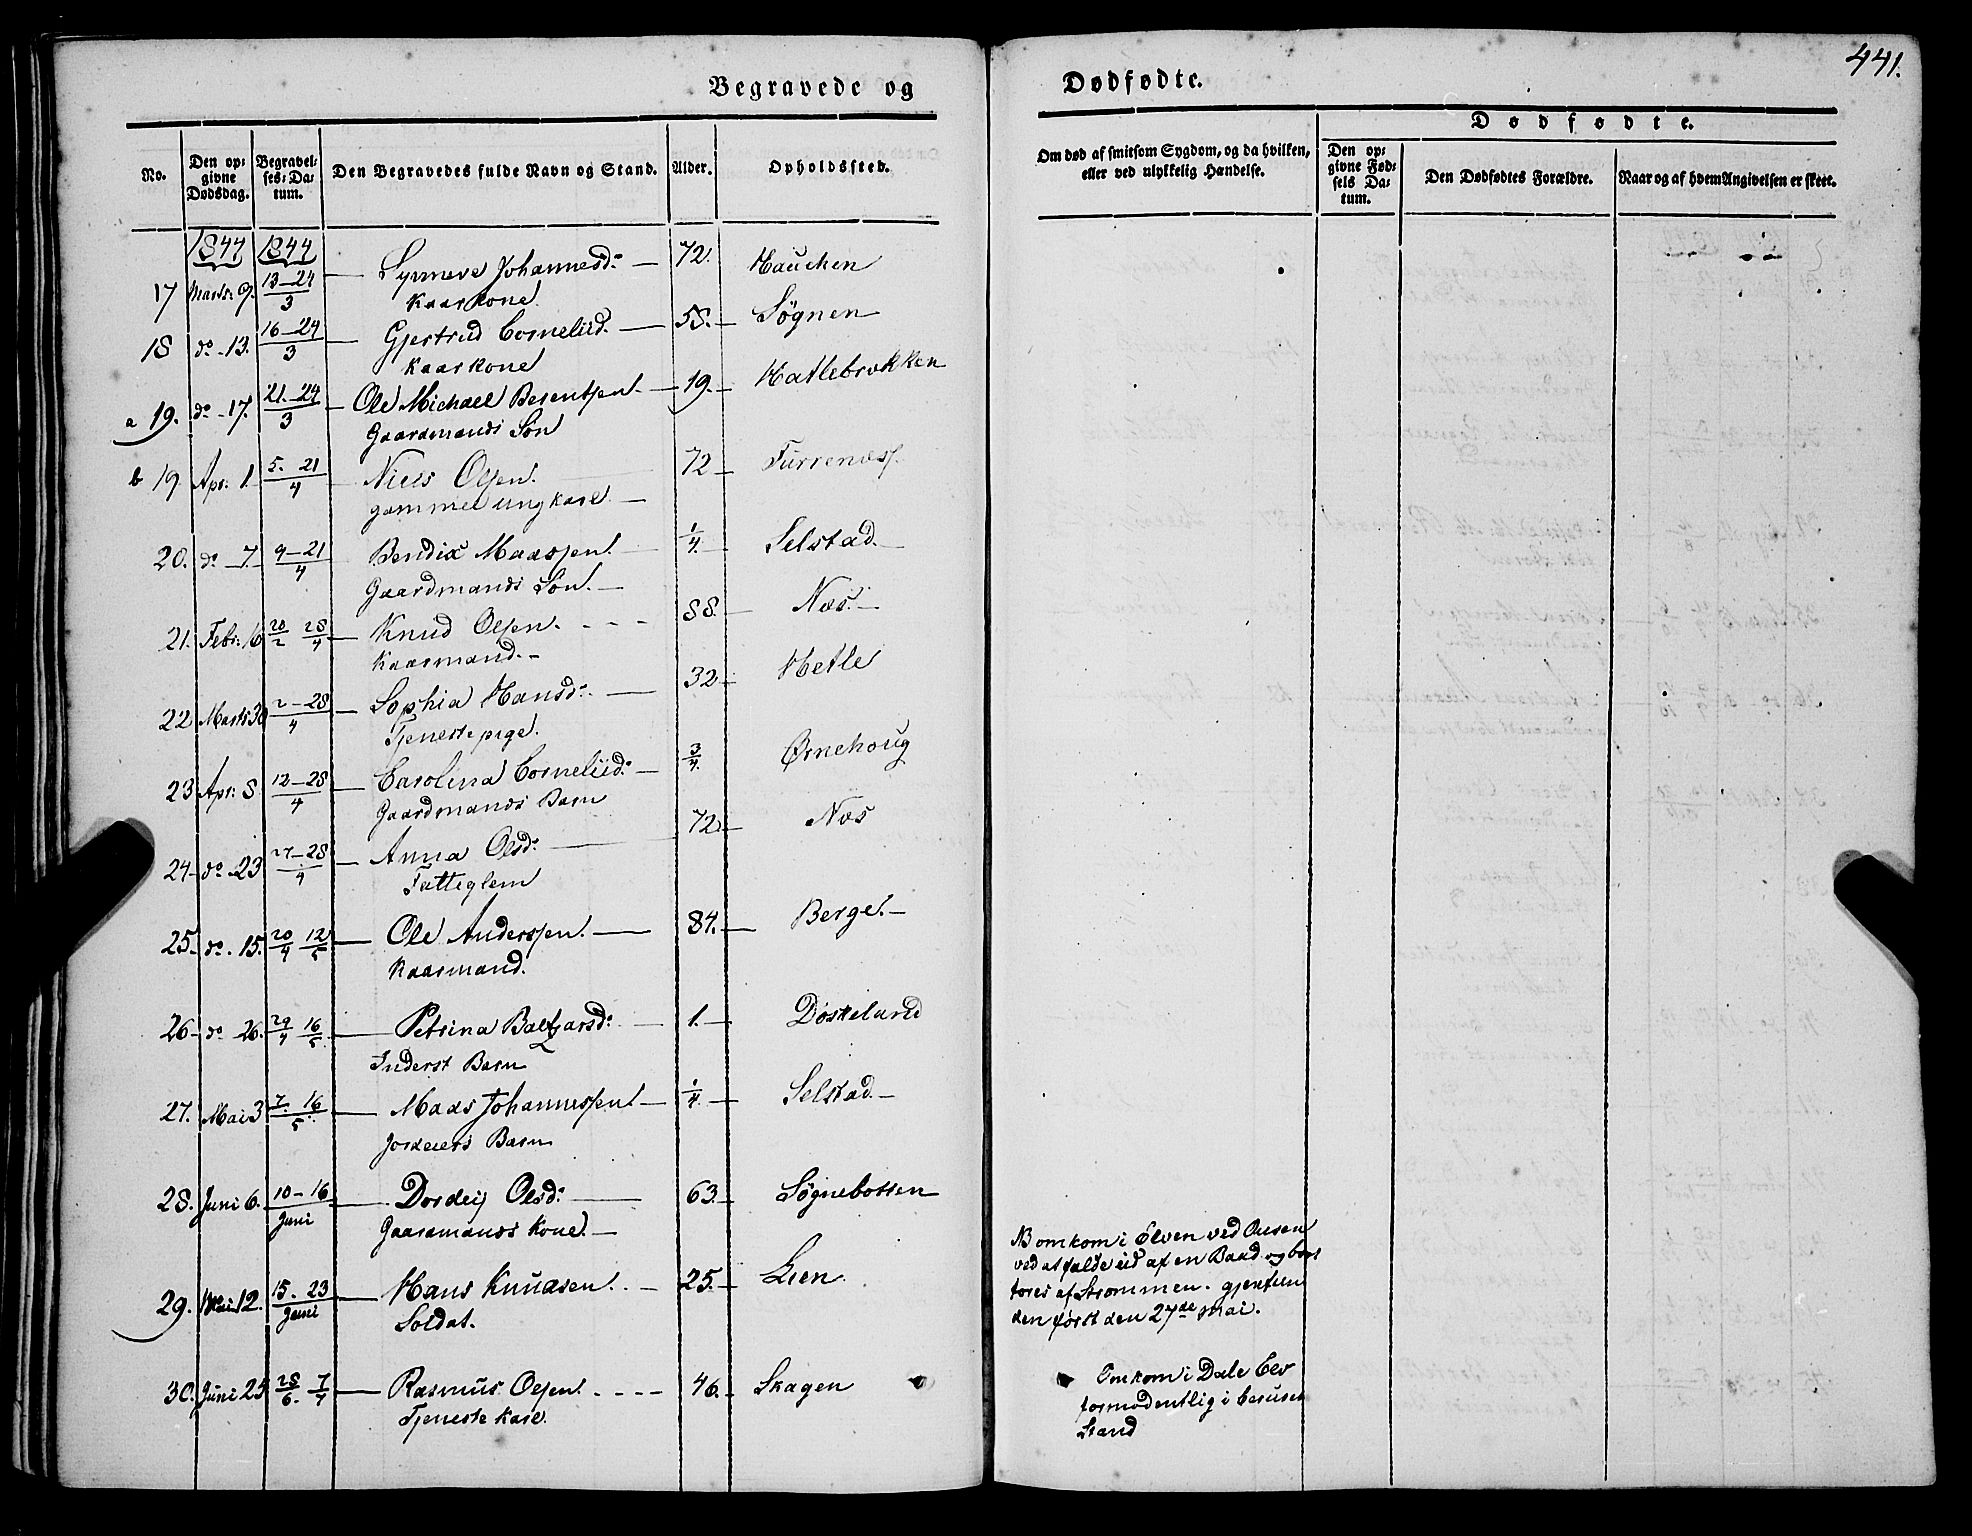 441.
Begravede og Dødfødte.
No. Den opgivne Dødsdag. Begravelses-Datum. Den Begravedes fulde Navn og Stand. Alder. Opholdssted.
Om død af smitsom Sygdom, og da hvilken, eller ved ulykkelig Hændelse.
Dødfødte.
Den opgivne Fødsels Datum. Den Dødfødtes Forældre. Naar og af hvem Angivelsen er skeet.
1844 1844
17 Marts 9. 13-24/3 Synneve Johannesd: 72. Haucken
Kaarkone
18 do 13. 16-24/3 Gjertrud Corneliid. 58. Søgnen
Kaarkone
a 19. do 17. 21-24/3 Ole Michael Berentsen 19. Hatlebrekken
Gaardmands Søn
b 19 Apr: 1. 5. 21/4 Niels Olsen. 72 Furrenæs
gammel ungkarl
20. do 7. 9-21/4 Bendix Madssen 1/4. Selstad
Gaardmands Søn.
21. Febr: 16 20/2 28/4 Knud Olsen. 88. Næs.
Kaarmand.
22 Marts 30 2-28/4 Sophia Hansd: 32 Hetle
Tjenestepige.
23 Apr: 8. 12-28/4 Carolina Corneliid: 3/4. Ørnehoug
Gaardmands Barn
24 do 23 27-28/4 Anna Olsd: 72. Næs
Fattiglem
25. do 15. 20/4 12/5 Ole Anderssen. 84. Berge.
Kaarmand.
26 do 26. 29/4 16/5 Petrina Baltzarsd: 1. Døskeland
Inderst Barn
27. Mai 3 7. 16/5 Mads Johannessen 1/4. Selstad.
Jordeiers Barn
28. Juni 6. 10-16/Juni Dordeij Olsd: 63. Søgnebotten
Gaardmands Kone.
29. Mai 12. 15. 23/Juni Hans Knudsen. 25. Lien.
Soldat.
NB omkom i Elven ved Ousen
ved at falde ud af en Baad og bort
føres af Strømmen. gjenfun
den først den 27de Mai.
30. Juni 25 28/6. 7/7 Rasmus Olsen. 46. Skagen
Tjeneste Karl.
Omkom i Dale Elv
formodentlig i beruset
Stand